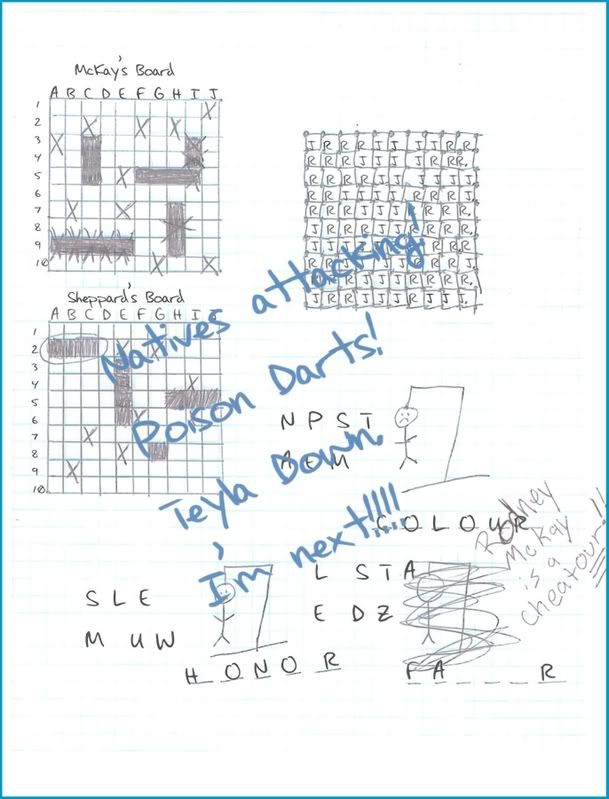 McKay's Board
A B C D E F G H I J
1
2
3
4
5
6
7
8
9
10
Sheppard's Board
A B C D E F G H I J
1
2
3
4
5
6
7
8
9
10
Natives attacking!
Poison Darts!
Teyla Down,
I'm next!!!!
N P S T
A E M
C O L O U R
Rodney
McKay
is a
cheatour!!
S L E
M U W
H O N O R
L S T A
E D Z
F A _ _ _ R